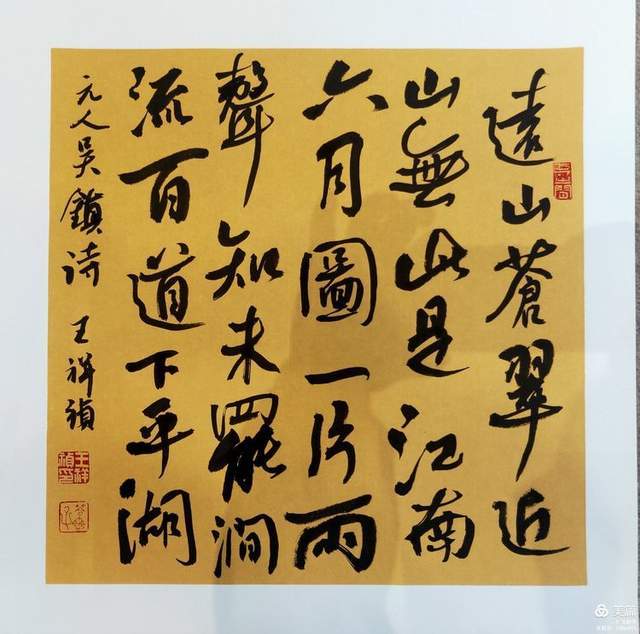 遠山蒼翠近
山無此是江南
六月圖一片雨
聲知未罷澗
流百道下平湖
元人吴鎮诗 王祥禎
王祥
禎印
美篇